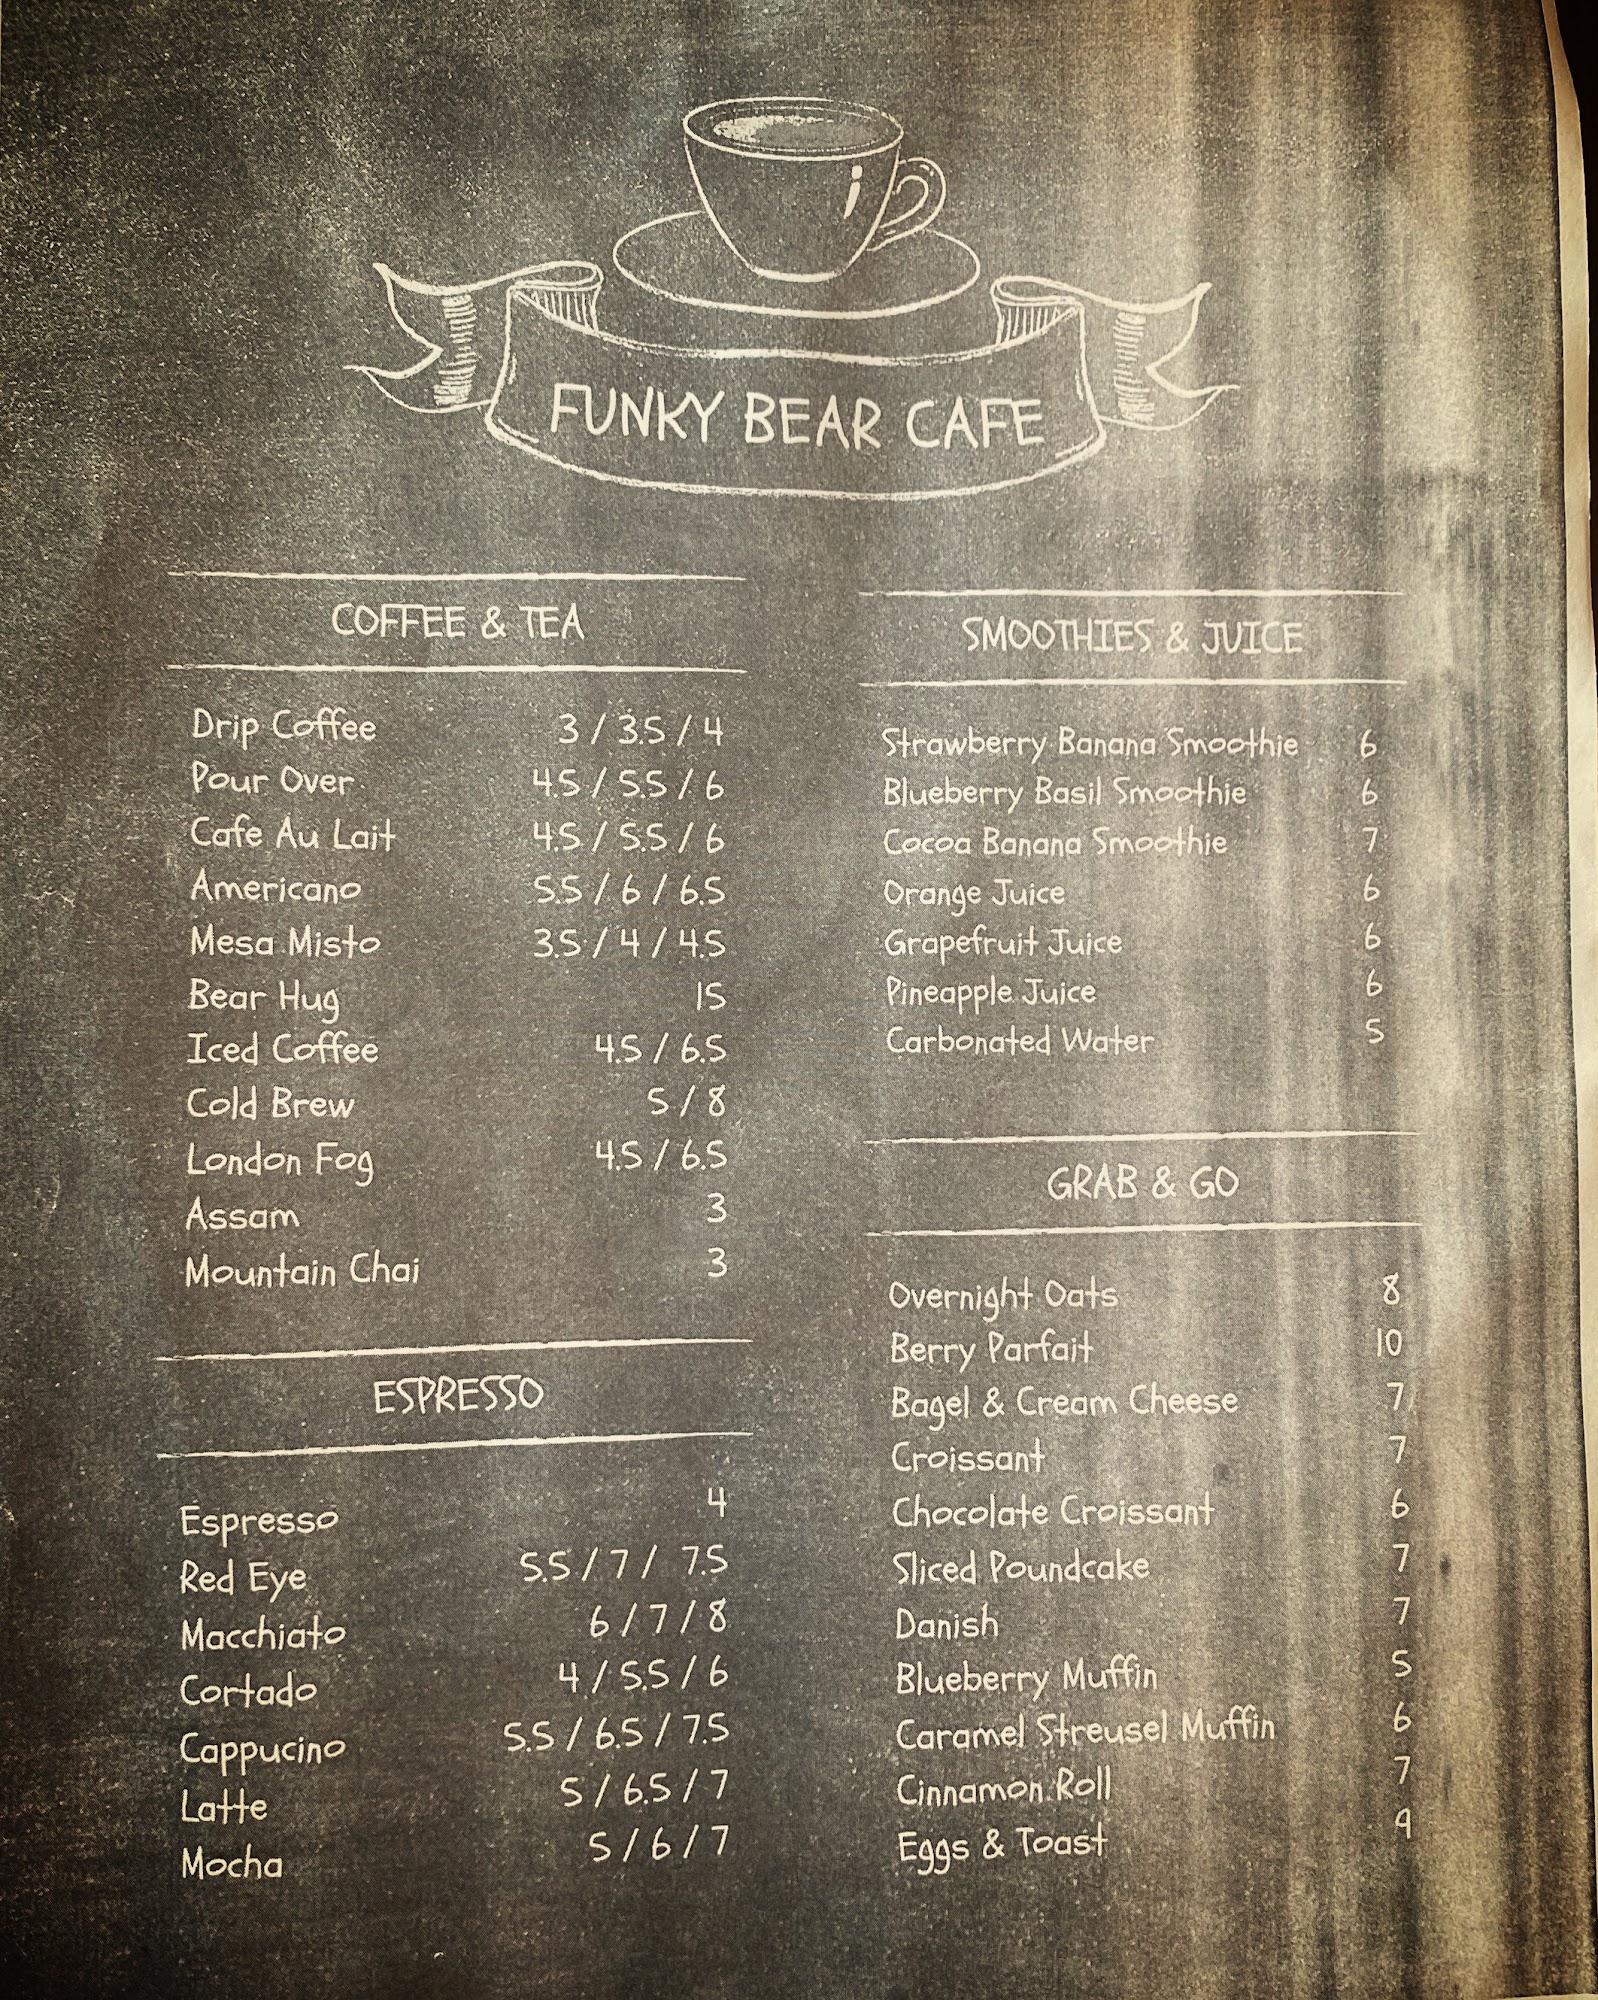 FUNKY BEAR CAFE
COFFEE & TEA
Drip Coffee 3 / 3.5 / 4
Pour Over 4.5 / 5.5 / 6
Cafe Au Lait 4.5 / 5.5 / 6
Americano 5.5 / 6 / 6.5
Mesa Misto 3.5 / 4 / 4.5
Bear Hug 15
Iced Coffee 4.5 / 6.5
Cold Brew 5 / 8
London Fog 4.5 / 6.5
Assam 3
Mountain Chai 3
ESPRESSO
Espresso 4
Red Eye 5.5 / 7 / 7.5
Macchiato 6 / 7 / 8
Cortado 4 / 5.5 / 6
Cappucino 5.5 / 6.5 / 7.5
Latte 5 / 6.5 / 7
Mocha 5 / 6 / 7
SMOOTHIES & JUICE
Strawberry Banana Smoothie 6
Blueberry Basil Smoothie 6
Cocoa Banana Smoothie 7
Orange Juice 6
Grapefruit Juice 6
Pineapple Juice 6
Carbonated Water 5
GRAB & GO
Overnight Oats 8
Berry Parfait 10
Bagel & Cream Cheese 7
Croissant 7
Chocolate Croissant 6
Sliced Poundcake 7
Danish 7
Blueberry Muffin 5
Caramel Streusel Muffin 6
Cinnamon Roll 7
Eggs & Toast 9